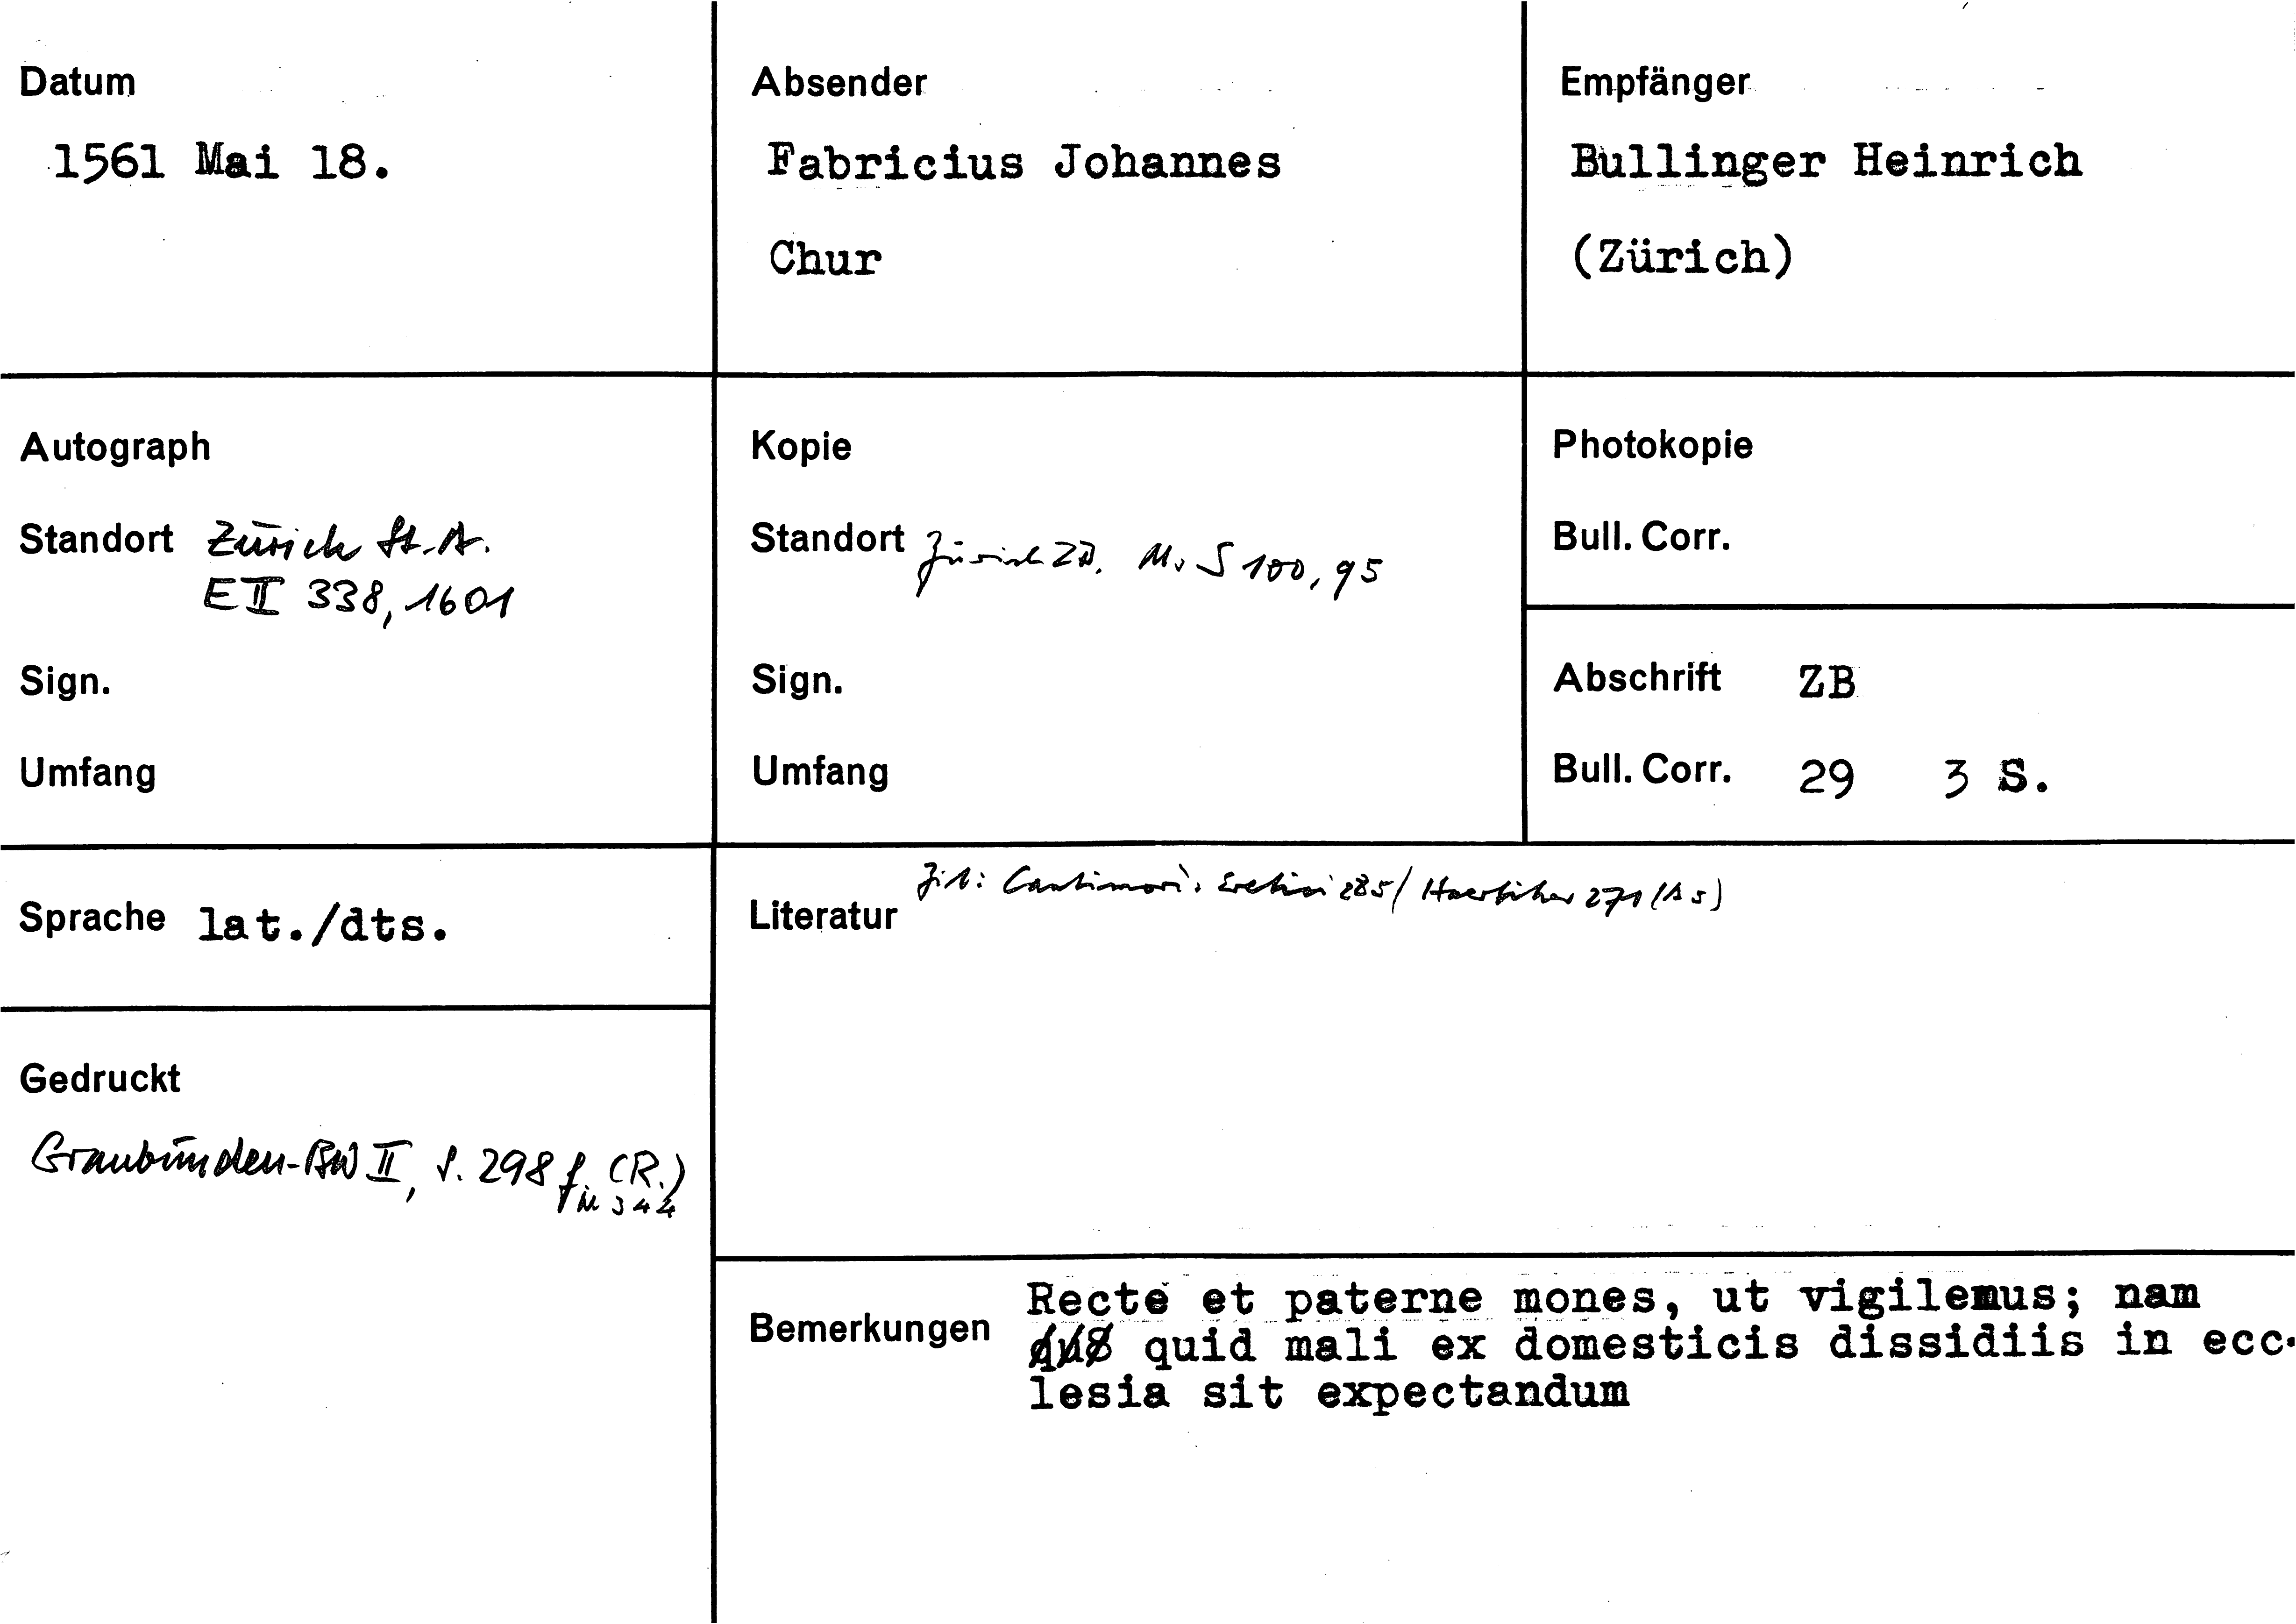 Datum
1561 Mai 18.
Absender
Fabricius Johannes
Chur
Empfänger
Bullinger Heinrich
(Zürich)
Autograph
Standort Zürich St.A.
E II 338, 1601
Sign.
Umfang
Kopie
Standort Zürich ZB. Ms S 100, 95
Sign.
Umfang
Photokopie
Bull. Corr.
Abschrift ZB
Bull. Corr. 29 3 S.
Sprache lat./dts.
Literatur Zit: Cantimori, Eretici 285/ 271 (A 5)
Gedruckt
Graubünden-BW II, S. 298 f. (R.)
Nr 344
Bemerkungen Recte et paterne mones, ut vigilemus; nam
quid mali ex domesticis dissidiis in ecc-
lesia sit expectandum